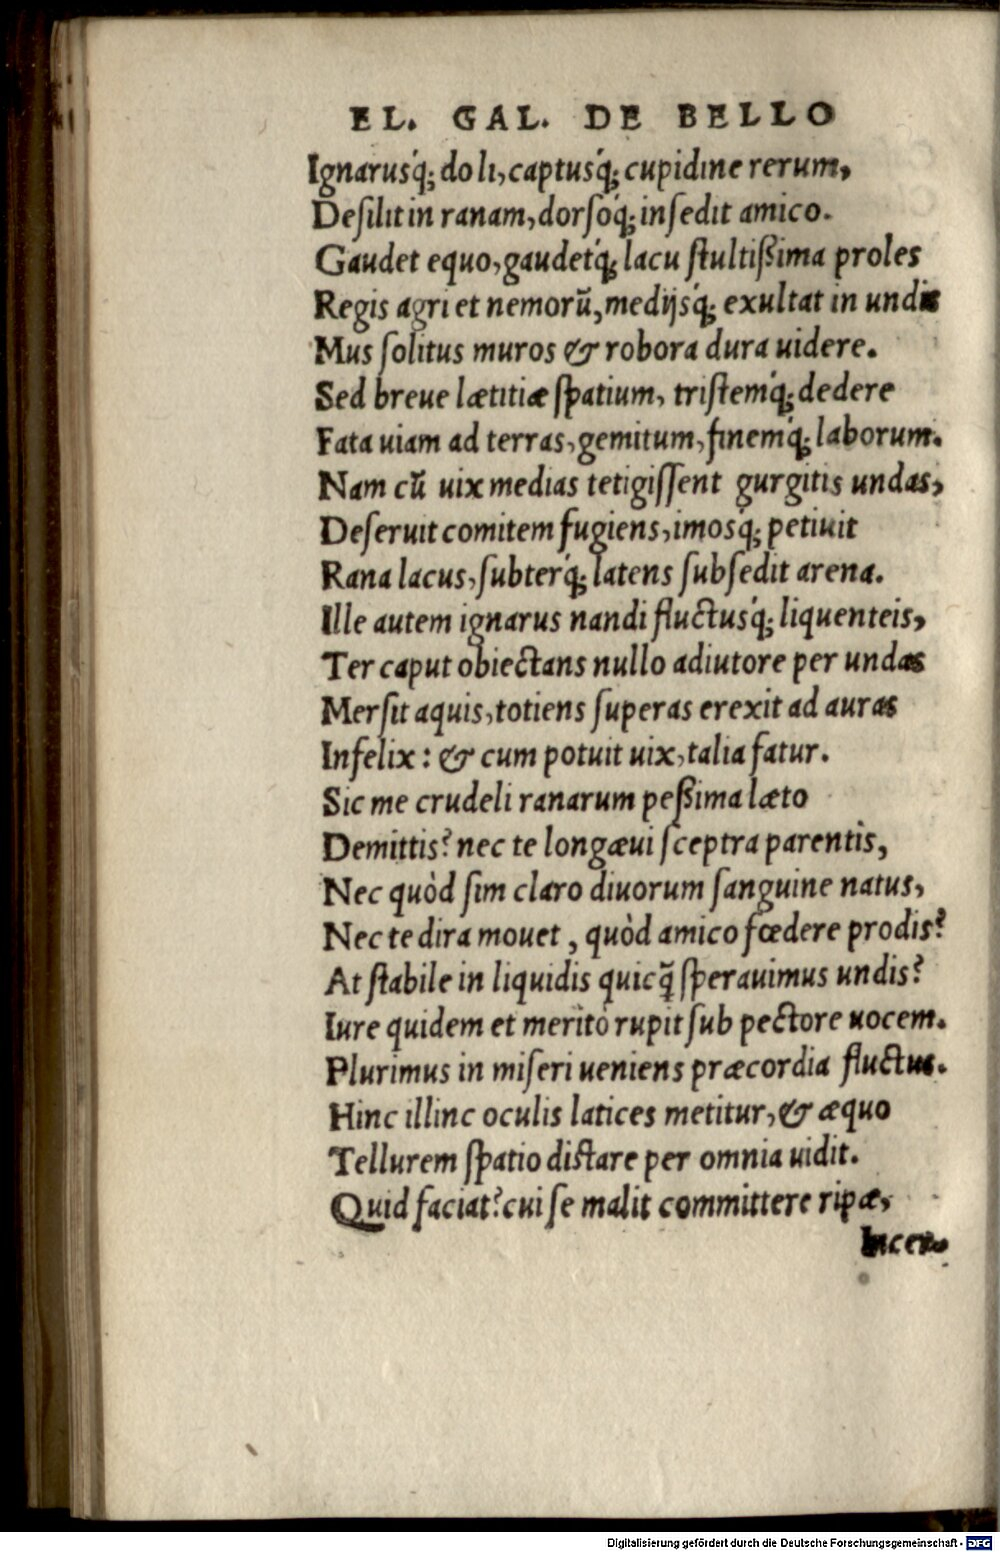 EL. GAL. DE BELLO
Ignarusq́; doli, captusq́; cupidine rerum,
Desilit in ranam, dorsoq́; insedit amico.
Gaudet equo, gaudetq́; lacu stultißima proles
Regis agri et nemorū, medijsq́; exultat in undis
Mus solitus muros & robora dura uidere.
Sed breue lætitiæ spatium, tristemq́; dedere
Fata uiam ad terras, gemitum, finemq́; laborum.
Nam cū uix medias tetigissent gurgitis undas,
Deseruit comitem fugiens, imosq́; petiuit
Rana lacus, subterq́; latens subsedit arena.
Ille autem ignarus nandi fluctusq́; liquenteis,
Ter caput obiectans nullo adiutore per undas
Mersit aquis, totiens superas erexit ad auras
Infelix: & cum potuit uix, talia fatur.
Sic me crudeli ranarum peßima læto
Demittis? nec te longæui sceptra parentis,
Nec quòd sim claro diuorum sanguine natus,
Nec te dira mouet, quòd amico fœdere prodis?
At stabile in liquidis quicq̃ sperauimus undis?
Iure quidem et meritò rupit sub pectore uocem.
Plurimus in miseri ueniens præcordia fluctus.
Hinc illinc oculis latices metitur, & æquo
Tellurem spatio distare per omnia uidit.
Quid faciat? cui se malit committere ripæ,
Incer-
Digitalisierung gefördert durch die Deutsche Forschungsgemeinschaft - DFG